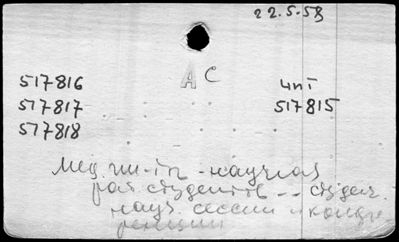 22.5.58
А С
517816 чпт
517817 517815
517818
Мед. ин-ты - научная
раб. студентов -- студен.
науч. сессии и конфе
ренции